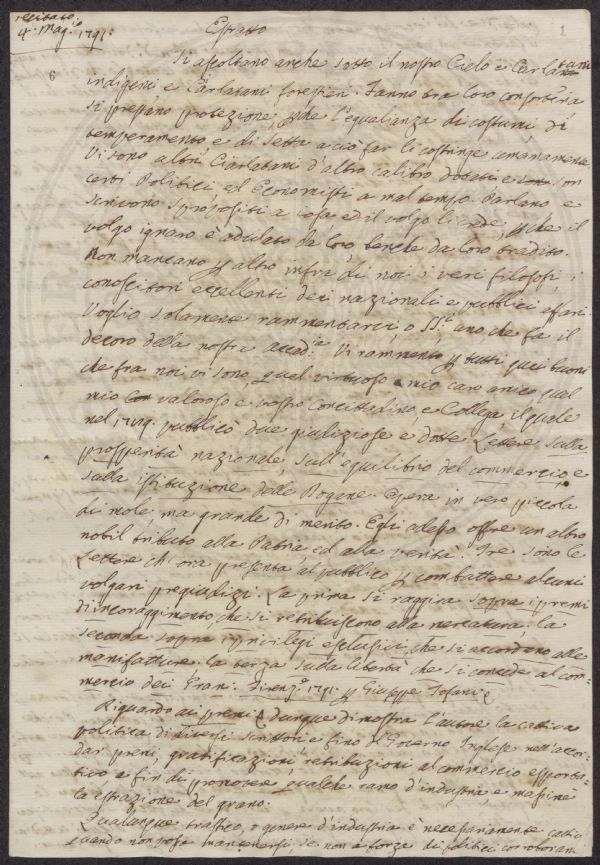 recitato
4. Mag.o 1791.
Estratto
1
6
Si ascoltano anche sotto il nostro Cielo e Ciarlatani
indigeni e Ciarlatani forestieri. Fanno tra loro consorteria
si prestano protezione, che l'eguaglianza di costumi di
temperamento e di setta a ciò far li costringe umanamente
Vi sono altri Ciarlatani d'altro calibro e son
certi Politici ed Economisti a mal tempo. Parlano e
scrivono spropositi a iosa ed il volgo li crede, che il
volgo ignaro è adulato da loro benche da loro tradito.
Non mancano altro infra di noi i veri filosofi, i
conoscitori eccellenti dei nazionali e pubblici affari.
Voglio solamente rammentarvi, o SS.i uno che fa il
decoro della nostra accad.a Vi rammento tutti quei buoni
che fra noi vi sono, quel virtuoso mio caro amico, quel
mio valoroso e nostro concittadino, e Collega il quale
nel pubblicò due giudiziose e dotte Lettere sulla
prosperità nazionale, sull'equilibrio del commercio, e
sulla istituzione delle Dogane. Opera in vero piccola
di mole, ma grande di merito. Egli adesso offre un altro
nobil tributo alla Patria ed alla verità. Tre sono le
Lettere ch'ora presenta al pubblico combattere alcuni
volgari pregiudizi. La prima si raggira sopra i premi
d'incoraggimento che si retribuiscono alla mercatura, la
seconda sopra i privilegi esclusivi che si accordano alle
manifatture, la terza sulla libertà che si concede al com-
mercio dei Grani. Firenze 1791. Giuseppe Tofani.
Riguardo ai premi dunque dimostra l'autore la cattiva
politica di diversi scrittori e fino Governo Inglese nell'accor-
dar premi, gratificazioni, retribuzioni al commercio esporta-
tivo a fin di promovere qualche ramo d'industria, e massime
la estrazione del grano.
Qualunque traffico, o genere d'industria è necessariamente cattivo
quando non possa mantenersi se non a forza di politici corroboram